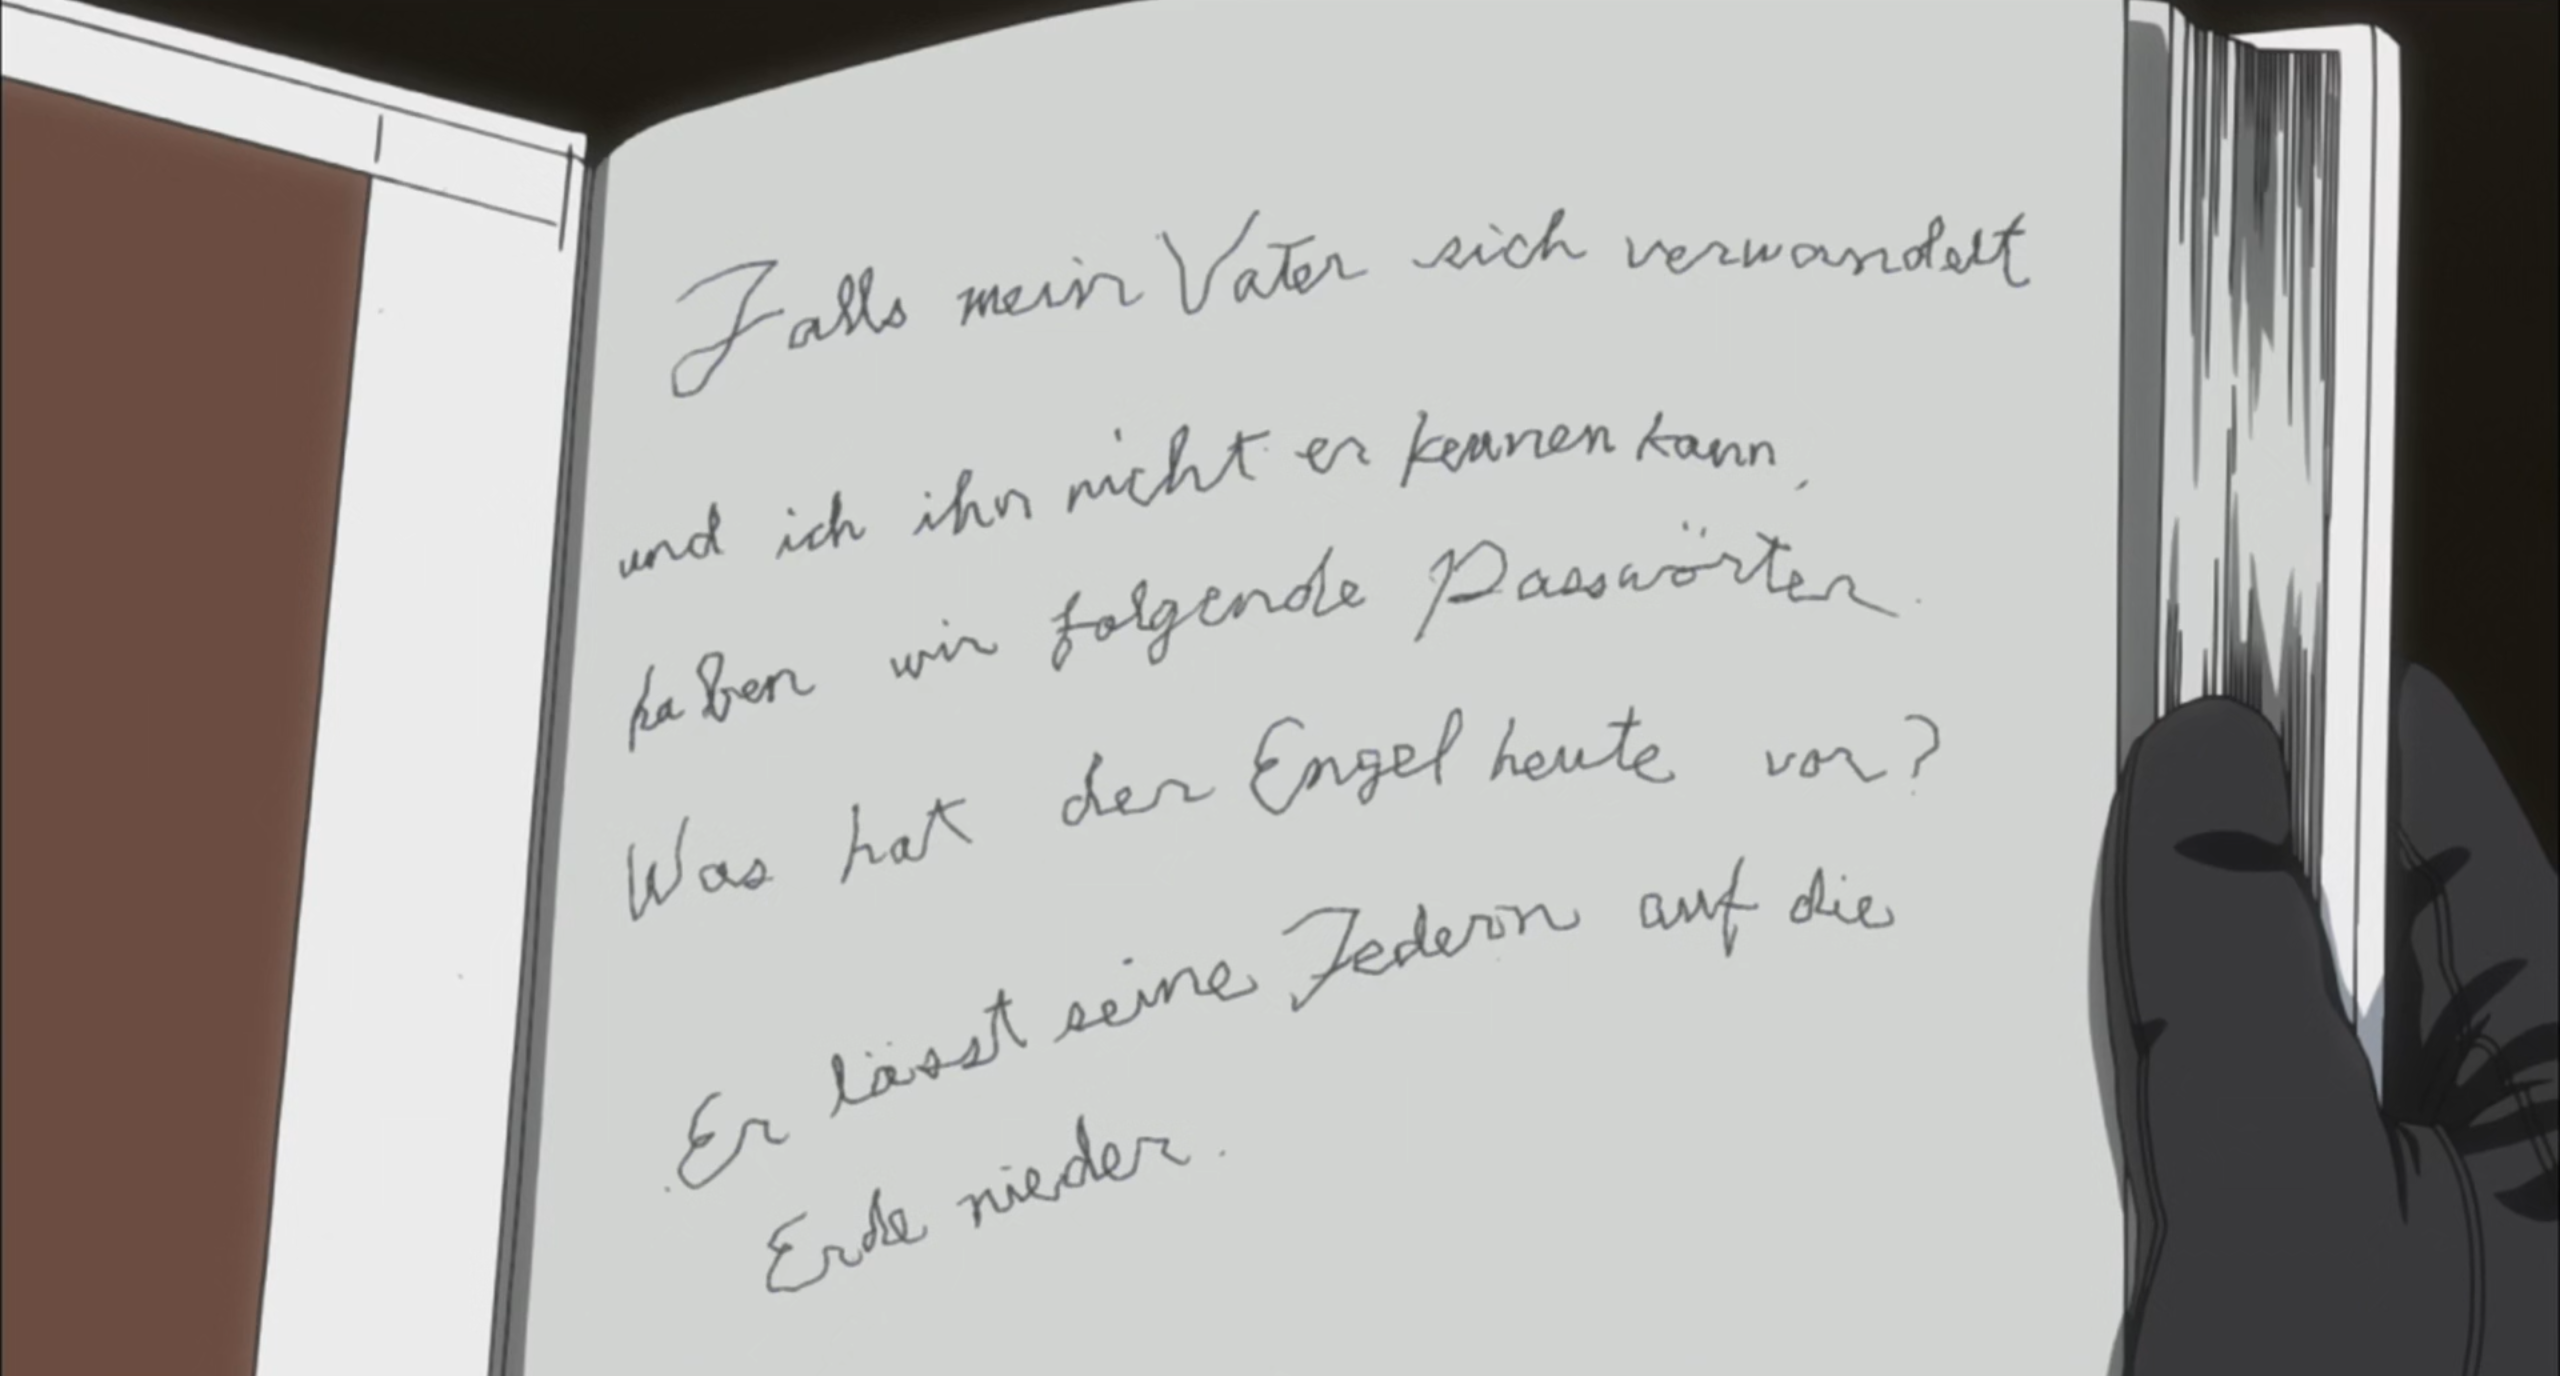 Falls mein Vater sich verwandelt
und ich ihn nicht er kennen kann,
haben wir folgende Passwörter.
Was hat der Engel heute vor?
Er lässt seine Federn auf die
Erde nieder.